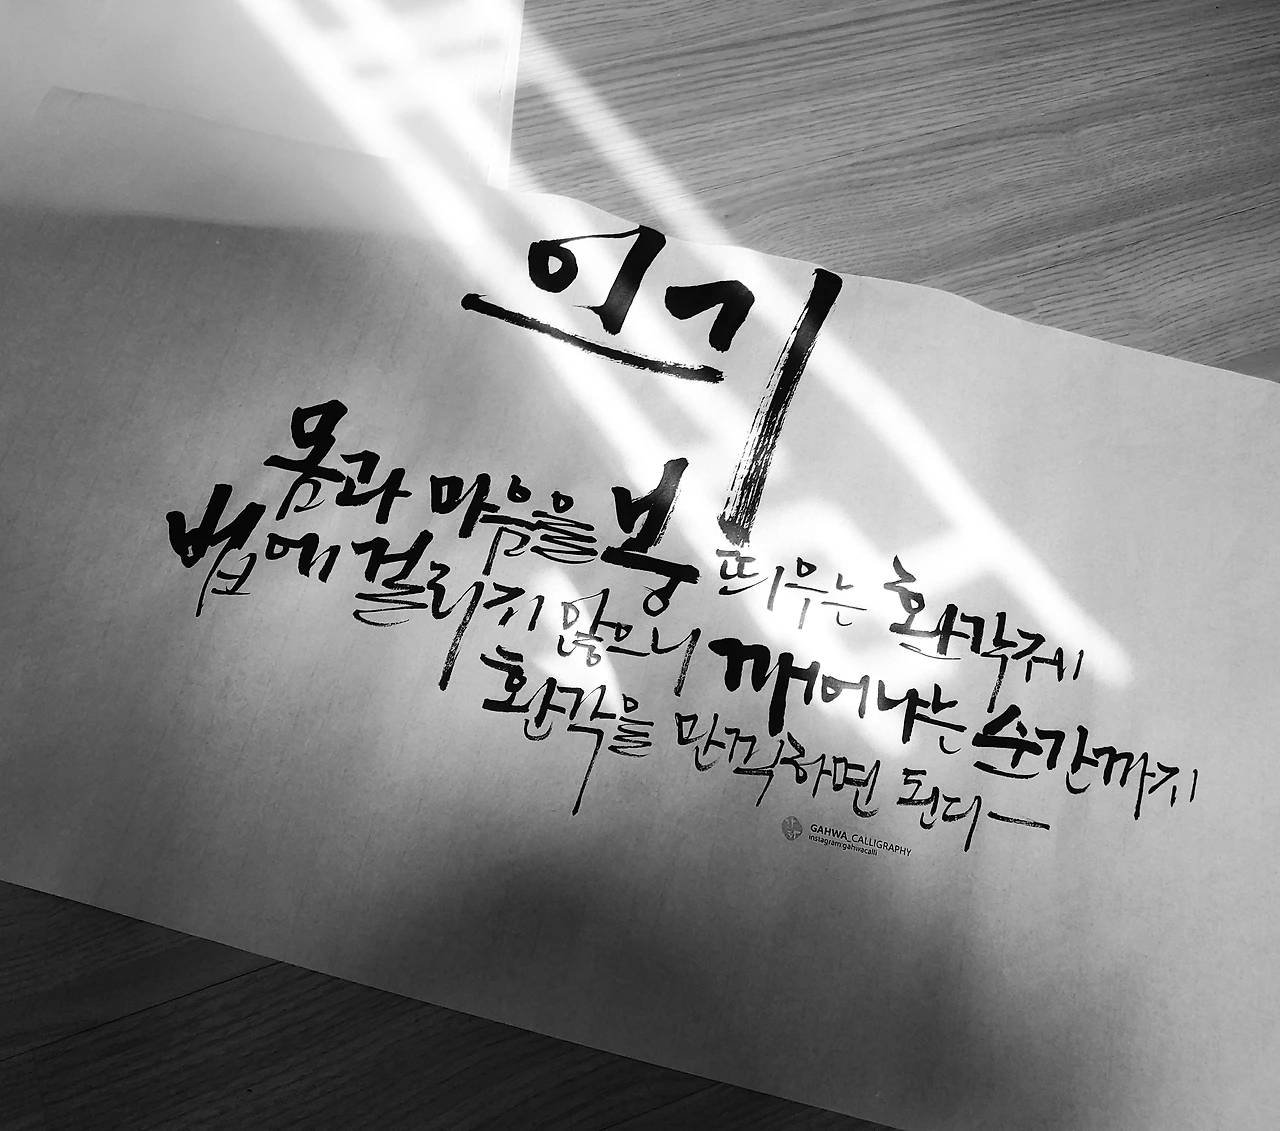 인기
몸과 마음을 붕 띄우는 환각제
법에 걸리지 않으니 깨어나는 순간까지
환각을 만끽하면 된다
GAHWA_CALLIGRAPHY
instagram:gahwacalli